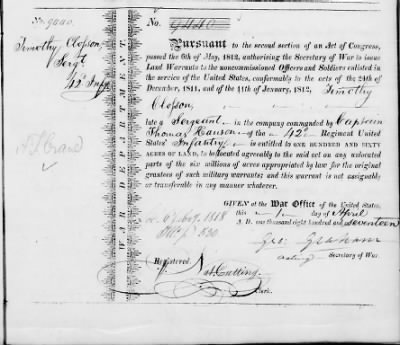 No. 9440.
Timothy Clopson,
Sergt
42d Inf
No. 9440
WAR DEPARTMENT.
Pursuant to the second section of an Act of Congress,
passed the 6th of May, 1812, authorising the Secretary of War to issue
Land Warrants to the noncommissioned Officers and Soldiers enlisted in
the service of the United States, conformably to the acts of the 24th of
December, 1811, and of the 11th of January, 1812, Timothy
Clopson,
late a Sergeant in the company commanded by Captain
Thomas Hanson of the 42d Regiment United
States' Infantry is entitled to ONE HUNDRED AND SIXTY
ACRES OF LAND, to be located agreeably to the said act on any unlocated
parts of the six millions of acres appropriated by law for the original
grantees of such military warrants; and this warrant is not assignable
or transferable in any manner whatever.
GIVEN at the War Office of the United States,
this 1 day of April
A. D. one thousand eight hundred and seventeen
Geo: Graham
acting Secretary of War.
Registered.
Nat. Cutting
Clerk.